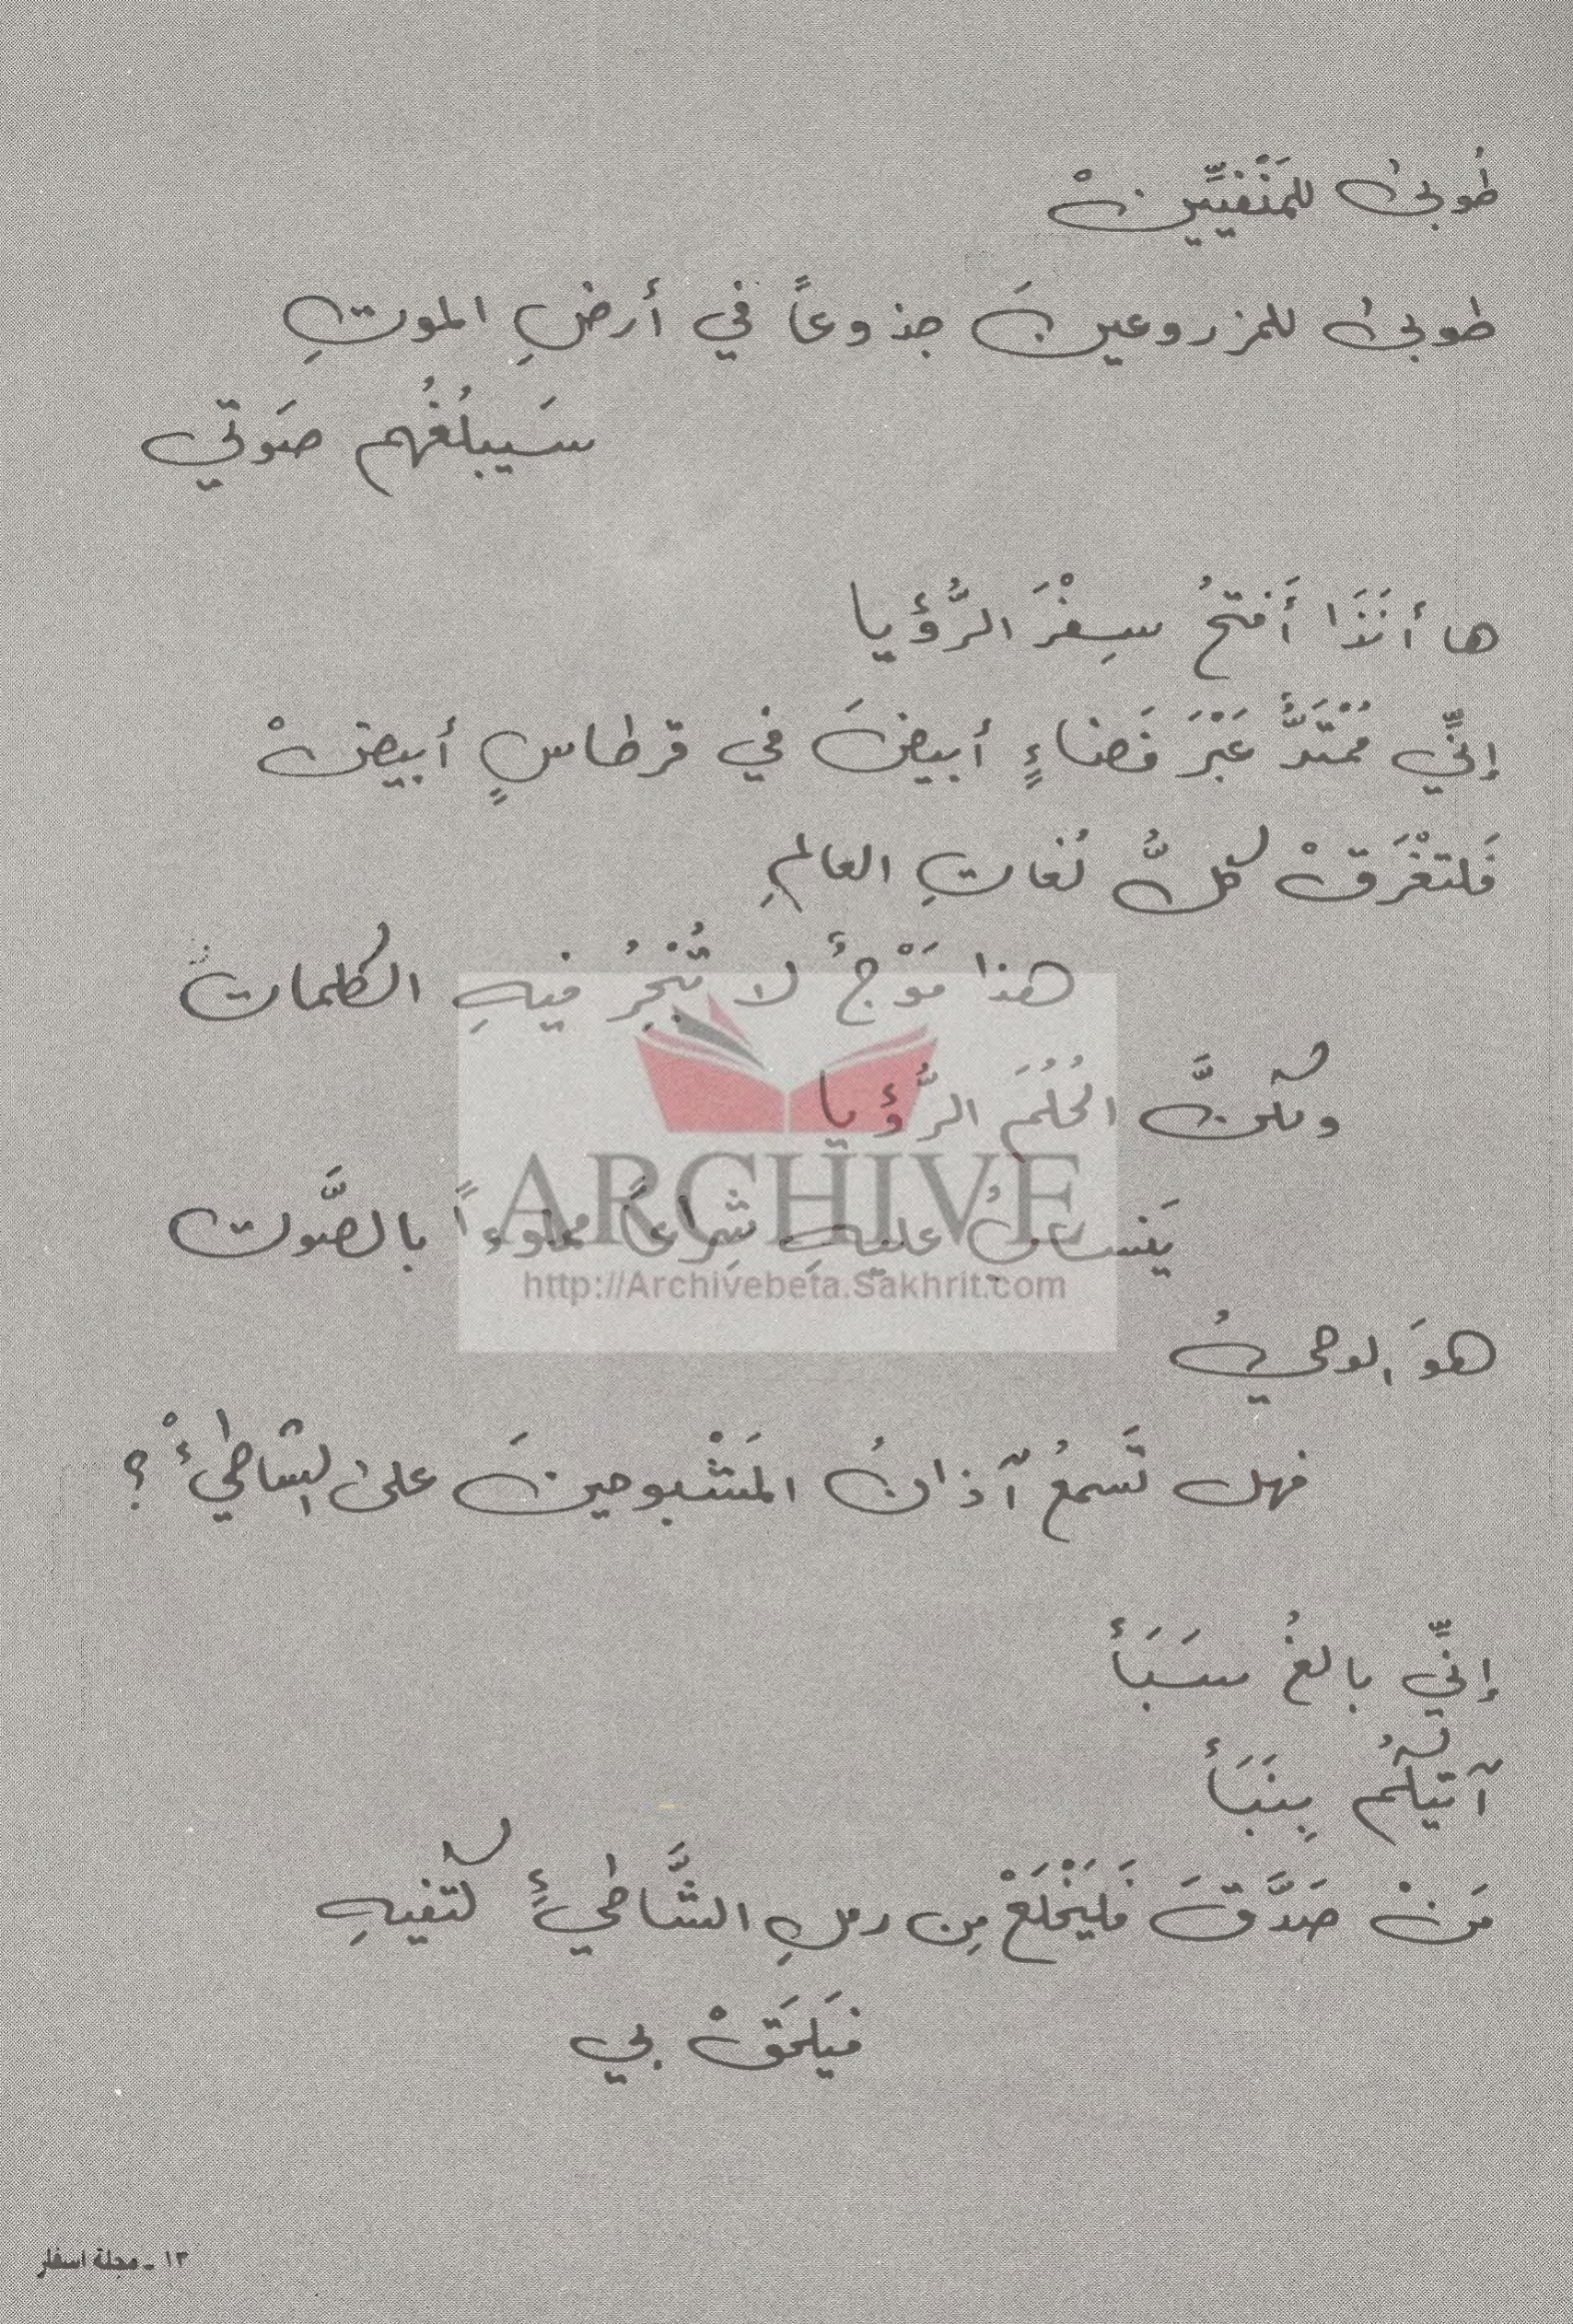 طُوبىٰ للمَنْفيِّينْ
طوبىٰ للمزروعينَ جذوعاً في أرضِ الموتِ
سَيبلُغُهم صَوتي
ها أنَذَا أَفتحُ سِفْرَ الرُّؤيا
إنِّي مُمْتَدٌّ عَبْرَ فَضاءٍ أبيضَ في قرطاسٍ أبيضْ
فَلتغْرَقْ كلُّ لُغاتِ العالمِ
هذا مَوْجٌ لا تُبْحِرُ فيهِ الكلماتُ
ولكنَّ الحُلُمَ الرُّؤيا
يَنسابُ عليهِ شِراعاً مملوءاً بالصَّوت
هوَ الوحيُ
فهل تَسمعُ آذانُ المَشْبوحينَ علىٰ الشاطئْ ؟
إنِّي بالغُ سَبَأ
آتيكُم بِنَبَأ
مَنْ صَدَّقَ فَليَخْلَعْ مِن رملِ الشَّاطئِ كتفيهِ
فيَلحَقْ بي
ARCHIVE
http://Archivebeta.Sakhrit.com
١٣ - مجلة اسفار